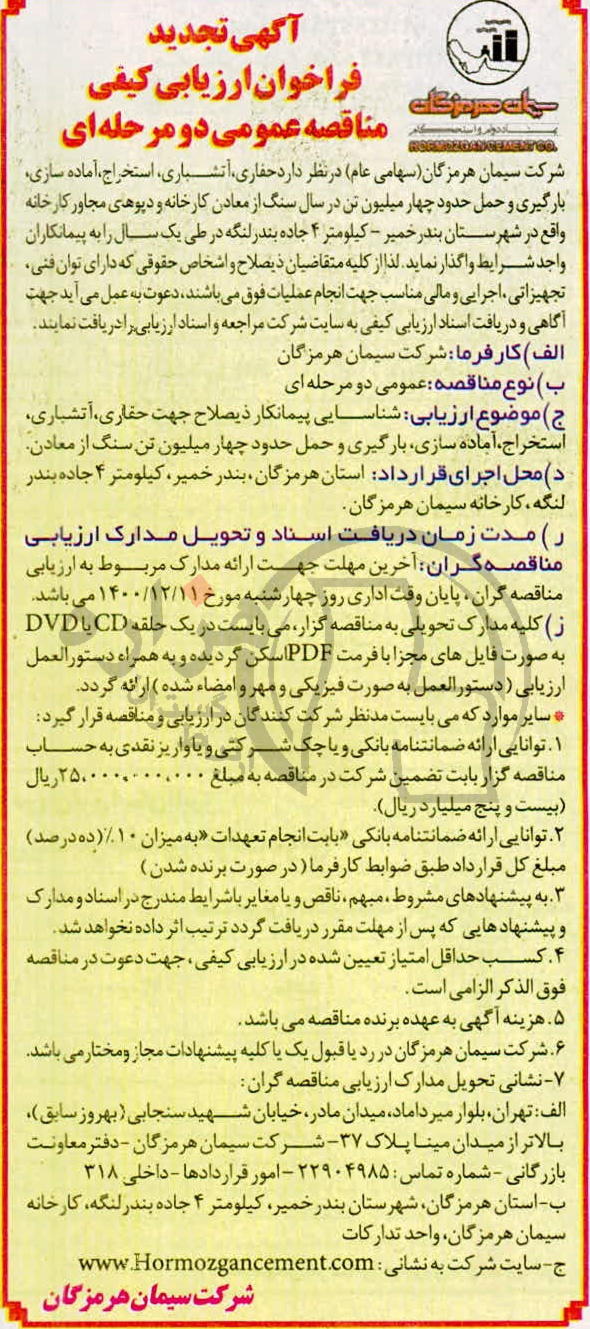 آگهی تجدید
فراخوان ارزیابی کیفی
مناقصه عمومی دو مرحله ای
سیمان هرمزگان
نماد دوام و استحکام
HORMOZGAN CEMENT CO.
شرکت سیمان هرمزگان(سهامی عام) درنظر دارد حفاری،آتشباری، استخراج،آماده سازی،
بارگیری و حمل حدود چهار میلیون تن در سال سنگ از معادن کارخانه و دپوهای مجاور کارخانه
واقع در شهرستان بندر خمیر - کیلومتر ۴ جاده بندرلنگه در طی یک سال را به پیمانکاران
واجد شرایط واگذار نماید. لذا از کلیه متقاضیان ذیصلاح و اشخاص حقوقی که دارای توان فنی،
تجهیزاتی، اجرایی و مالی مناسب جهت انجام عملیات فوق می‌باشند، دعوت به عمل می آید جهت
آگاهی و دریافت اسناد ارزیابی کیفی به سایت شرکت مراجعه و اسناد ارزیابی را دریافت نمایند.
الف) کارفرما: شرکت سیمان هرمزگان
ب) نوع مناقصه: عمومی دو مرحله ای
ج) موضوع ارزیابی: شناسایی پیمانکار ذیصلاح جهت حفاری،آتشباری،
استخراج،آماده سازی، بارگیری و حمل حدود چهار میلیون تن سنگ از معادن.
د) محل اجرای قرارداد: استان هرمزگان، بندر خمیر، کیلومتر ۴ جاده بندر
لنگه، کارخانه سیمان هرمزگان.
ر) مدت زمان دریافت اسناد و تحویل مدارک ارزیابی
مناقصه گران: آخرین مهلت جهت ارائه مدارک مربوط به ارزیابی
مناقصه گران، پایان وقت اداری روز چهارشنبه مورخ ۱۴۰۰/۱۲/۱۱ می باشد.
ز) کلیه مدارک تحویلی به مناقصه گزار، می بایست در یک حلقه CD یا DVD
به صورت فایل های مجزا با فرمت PDF اسکن گردیده و به همراه دستورالعمل
ارزیابی (دستورالعمل به صورت فیزیکی و مهر و امضاء شده) ارائه گردد.
* سایر موارد که می بایست مدنظر شرکت کنندگان در ارزیابی و مناقصه قرار گیرد:
۱. توانایی ارائه ضمانتنامه بانکی و یا چک شرکتی و یا واریز نقدی به حساب
مناقصه گزار بابت تضمین شرکت در مناقصه به مبلغ ۲۵،۰۰۰،۰۰۰،۰۰۰ ریال
(بیست و پنج میلیارد ریال).
۲. توانایی ارائه ضمانتنامه بانکی «بابت انجام تعهدات «به میزان ۱۰٪ (ده درصد)
مبلغ کل قرارداد طبق ضوابط کارفرما (در صورت برنده شدن)
۳. به پیشنهادهای مشروط، مبهم، ناقص و یا مغایر باشرایط مندرج در اسناد و مدارک
و پیشنهاد هایی که پس از مهلت مقرر دریافت گردد ترتیب اثر داده نخواهد شد.
۴. کسب حداقل امتیاز تعیین شده در ارزیابی کیفی، جهت دعوت در مناقصه
فوق الذکر الزامی است.
۵. هزینه آگهی به عهده برنده مناقصه می باشد.
۶. شرکت سیمان هرمزگان در رد یا قبول یک یا کلیه پیشنهادات مجاز و مختار می باشد.
۷- نشانی تحویل مدارک ارزیابی مناقصه گران:
الف: تهران، بلوار میرداماد، میدان مادر، خیابان شهید سنجابی (بهروز سابق)،
بالاتر از میدان مینا پلاک ۳۷- شرکت سیمان هرمزگان - دفتر معاونت
بازرگانی - شماره تماس: ۲۲۹۰۴۹۸۵ - امور قراردادها - داخلی ۳۱۸
ب- استان هرمزگان، شهرستان بندر خمیر، کیلومتر ۴ جاده بندرلنگه، کارخانه
سیمان هرمزگان، واحد تدارکات
ج- سایت شرکت به نشانی: www.Hormozgancement.com
شرکت سیمان هرمزگان